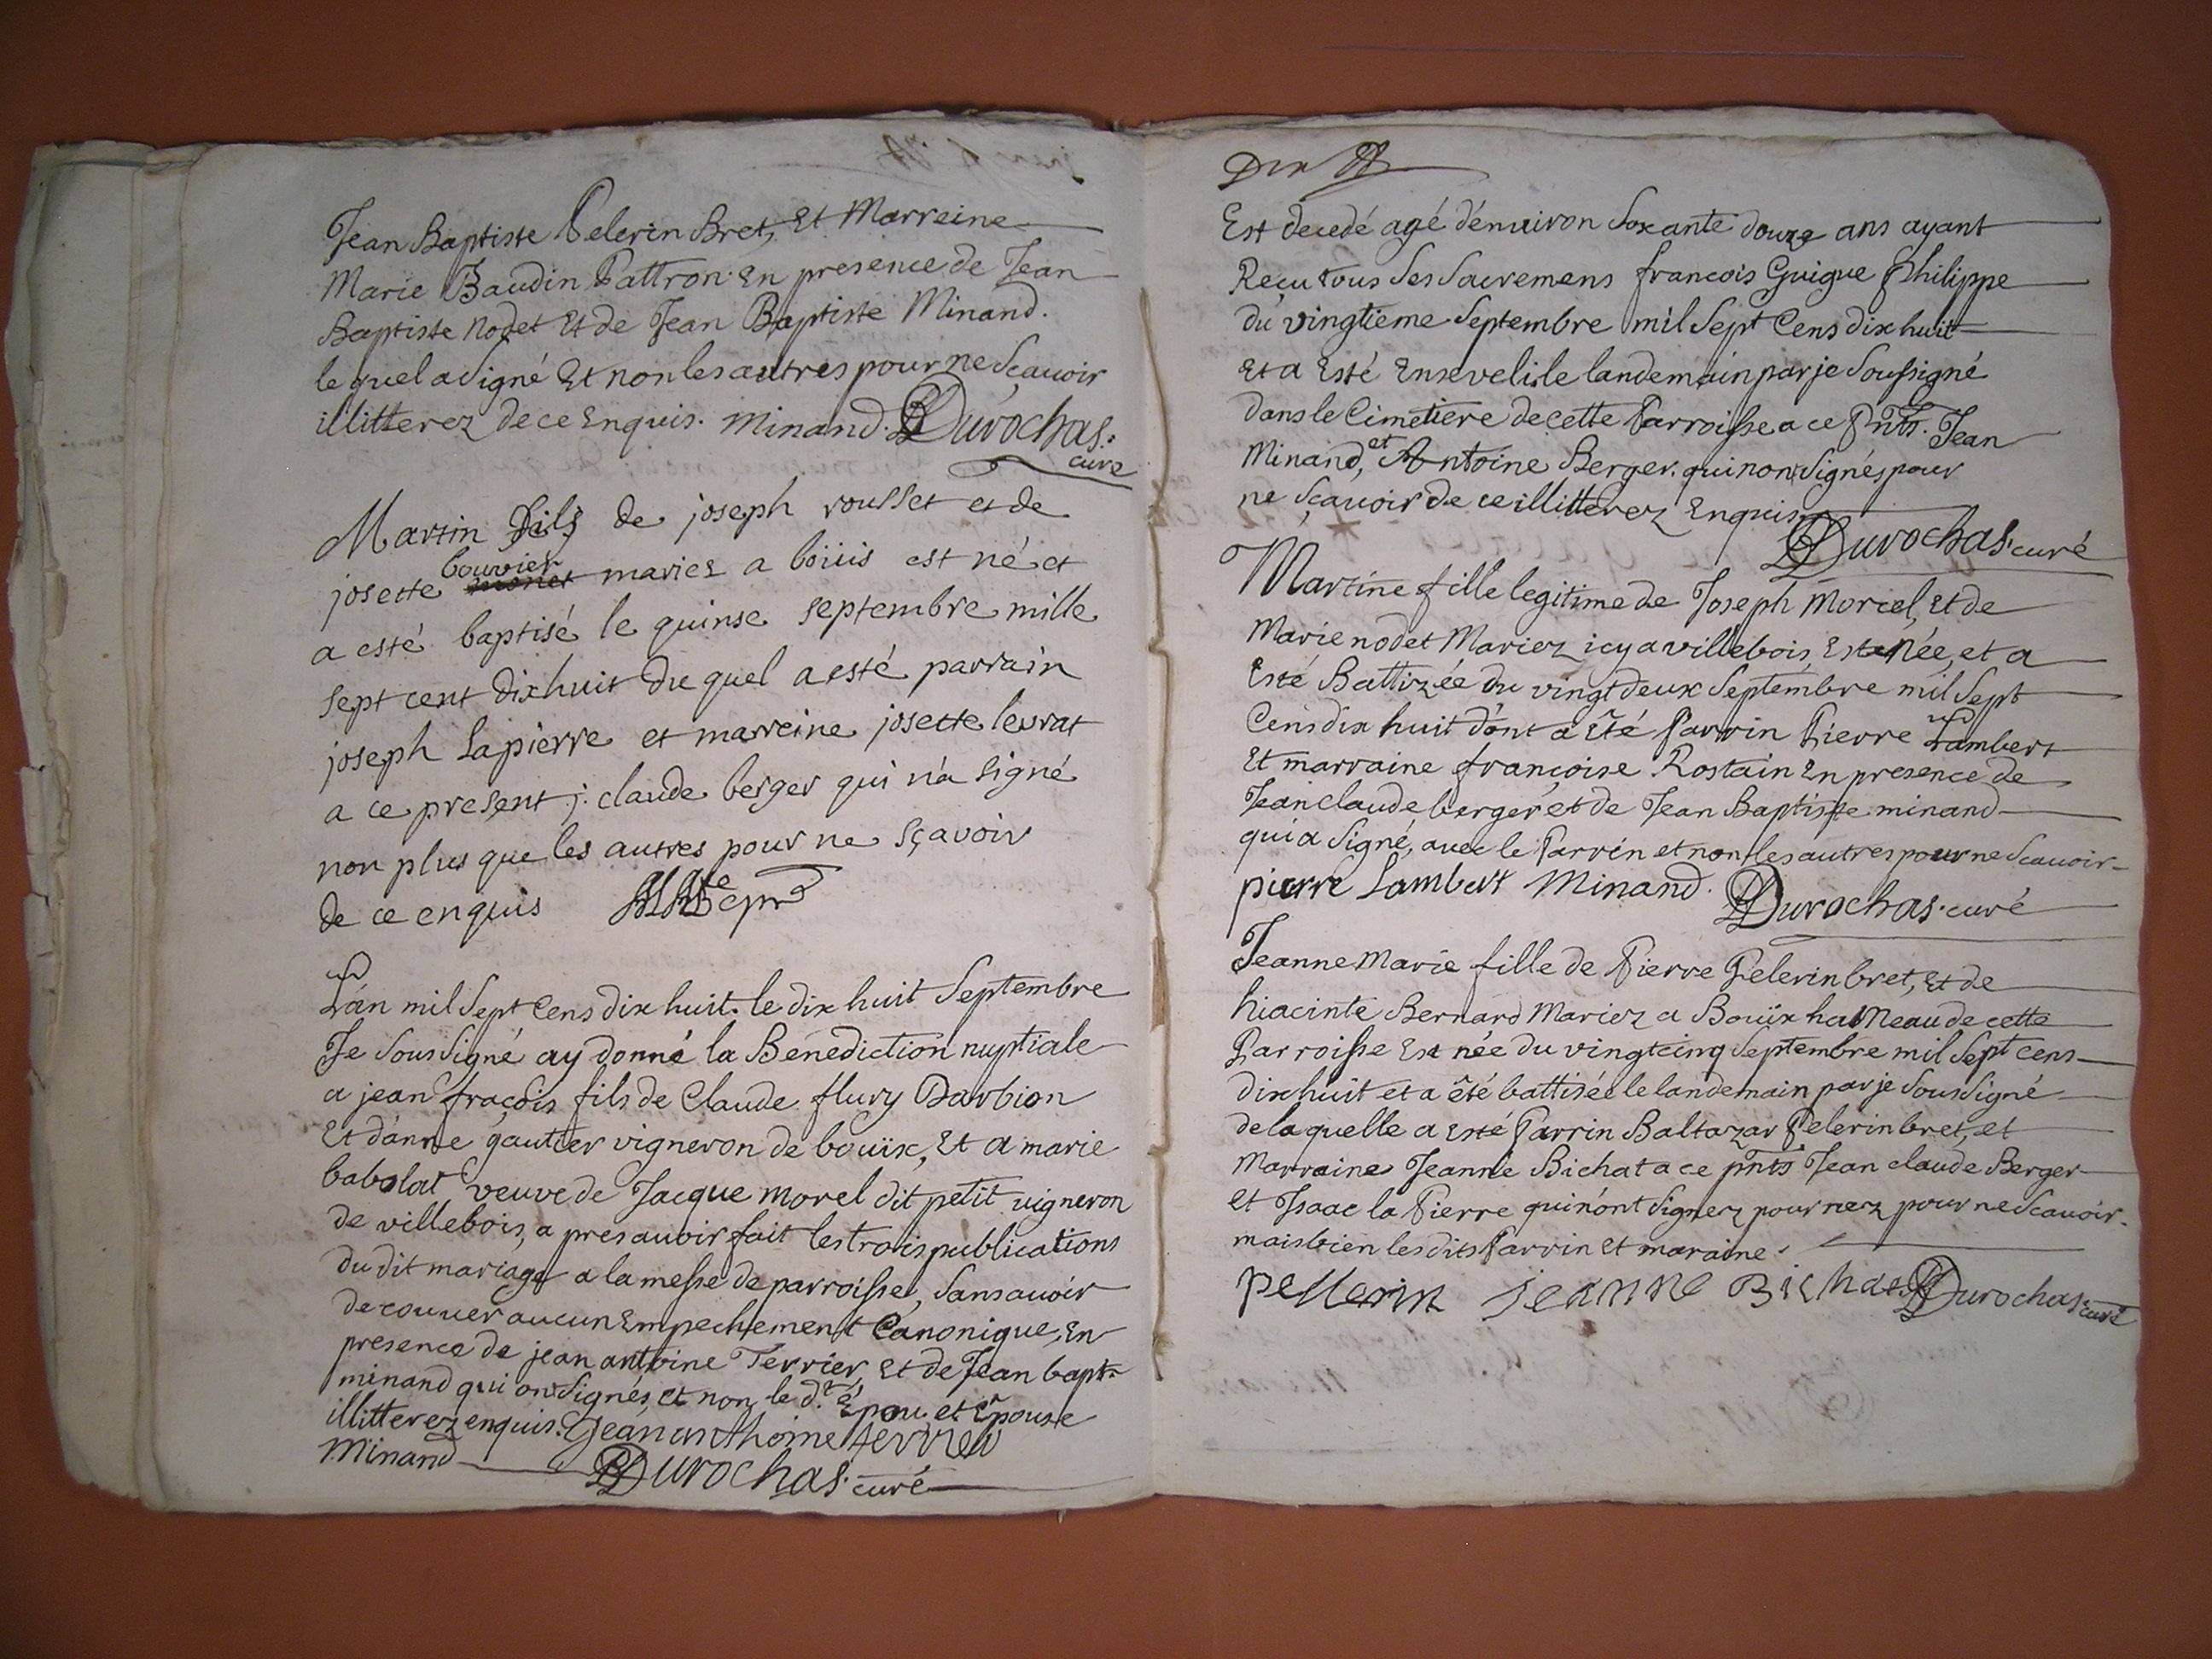 Jean Baptiste Pelerin Bret, Et Marreine
Marie Baudin Pattron. En presence de Jean
Baptiste Nodet Et de Jean Baptiste Minand.
lequel a Signé Et non les autres pour ne Scauoir
illitterez de ce Enquis. Minand. Durochas.
curé
Martin fils de joseph rousset et de
bouvier
josette monet mariez a boüis est né et
a esté baptisé le quinse septembre mille
sept cent dixhuit du quel a esté parrain
joseph Lapierre et marreine josette levrat
a ce present j. claude berger qui n'a signé
non plus que les autres pour ne sçavoir
de ce enquis
Lan mil Sept Cens dix huit. le dix huit Septembre
Je Sous Signé ay donné la Benediction nuptiale
a jean fraçois fils de Claude flury Darbion
Et d'anne gautier vigneron de boüix, Et a marie
babolat veuve de Jacque morel dit petit vigneron
de villebois, a pres auoir fait les trois publications
du dit mariage a la messe de parroisse, Sans auoir
decouuer aucun Empechement Canonique, En
presence de jean antoine Terrier, Et de Jean bapt.e
minand qui on Signés, et non le d.t Epou et Epouse
illitterez enquis. Jean anthoine terrier
Minand Durochas. curé
Dix
Est decedé agé d'enuiron Soxante douze ans ayant
Reçu tous Ses Sacremens francois Guigue Philippe
du vingtieme Septembre mil Sept Cens dix huit
Et a Esté Ensevelis le landemain par je Soussigné
dans le Cimetiere de cette Parroisse a ce Pnts. Jean
Minand, et Antoine Berger. qui non Signés pour
ne sçauoir de ce illitterez Enquis
Durochas. curé
Martine fille legitime de Joseph Morcel, Et de
Marie nodet Mariez icy a villebois, Est Née, et a
Esté Battizée du vingt deux Septembre mil Sept
Cens dix huit dont a été Parrin Pierre Lambert
Et marraine françoise Rostain En presence de
Jean claude berger et de Jean Baptiste minand
qui a Signé, avec le Parrin et non les autres pour ne Scauoir
pierre Lambert Minand. Durochas. curé
Jeanne Marie fille de Pierre Pelerin bret, Et de
hiacinte Bernard Mariez a Boüix hameau de cette
Parroisse Est née du vingt cinq Septembre mil Sept cens
dix huit et a été battisée le landemain par je Sous Signé
de la quelle a esté Parrin Baltazar Pelerin bret, et
Marraine Jeanne Bichat a ce pnts Jean claude Berger
et Isaac la Pierre qui n'ont Signez pour nerz pour ne Scauoir.
mais bien les dits Parrin et maraine.
pellerin jeanne Bichat Durochas. curé